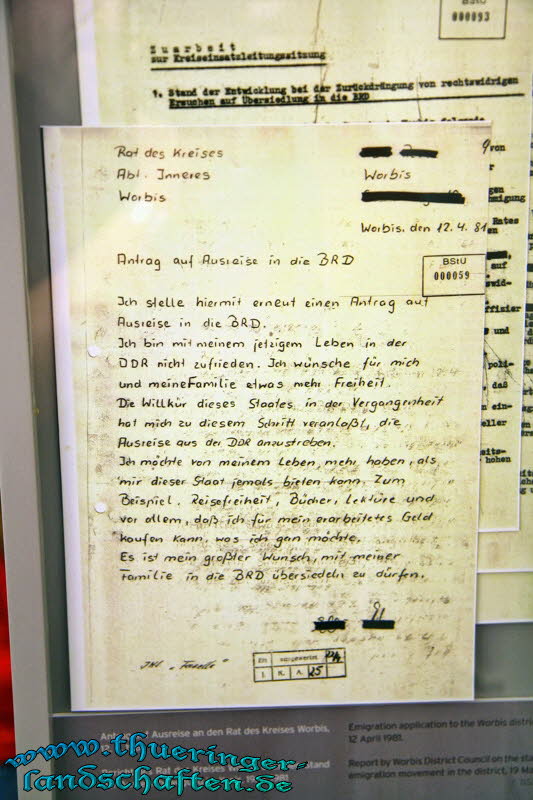 BStU
000093
Zuarbeit
zur Kreiseinsatzleitungssitzung
1. Stand der Entwicklung bei der Zurückdrängung von rechtswidrigen
Ersuchen auf Übersiedlung in die BRD
Rat des Kreises
Abt. Inneres
Worbis
Worbis
Worbis, den 12.4.81
Antrag auf Ausreise in die BRD
BStU
000059
Ich stelle hiermit erneut einen Antrag auf
Ausreise in die BRD.
Ich bin mit meinem jetzigem Leben in der
DDR nicht zufrieden. Ich wünsche für mich
und meine Familie etwas mehr Freiheit.
Die Willkür dieses Staates in der Vergangenheit
hat mich zu diesem Schritt veranlaßt, die
Ausreise aus der DDR anzustreben.
Ich möchte von meinem Leben, mehr haben, als
mir dieser Staat jemals bieten kann. Zum
Beispiel. Reisefreiheit, Bücher, Lektüre und
vor allem, daß ich für mein erarbeitetes Geld
kaufen kann, was ich gern möchte.
Es ist mein größter Wunsch, mit meiner
Familie in die BRD übersiedeln zu dürfen.
ausgewertet
I. K. A. 25
Ausreise an den Rat des Kreises Worbis,
Emigration application to the Worbis
12 April 1981.
Report by Worbis District Council on the
emigration movement in the district, 19
www.thueringer-
landschaften.de